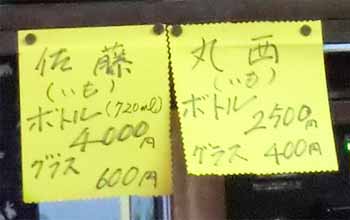 佐藤
(いも)
ボトル(720ml)
4000円
グラス
600円
丸西
(いも)
ボトル
2500円
グラス 400円